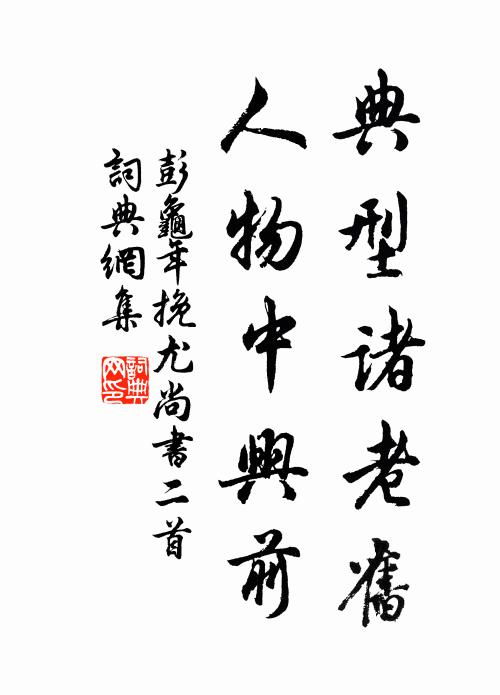 典型諸老舊
人物中興前
彭龜年挽尤尚書二首
詞典網集
詞典网印